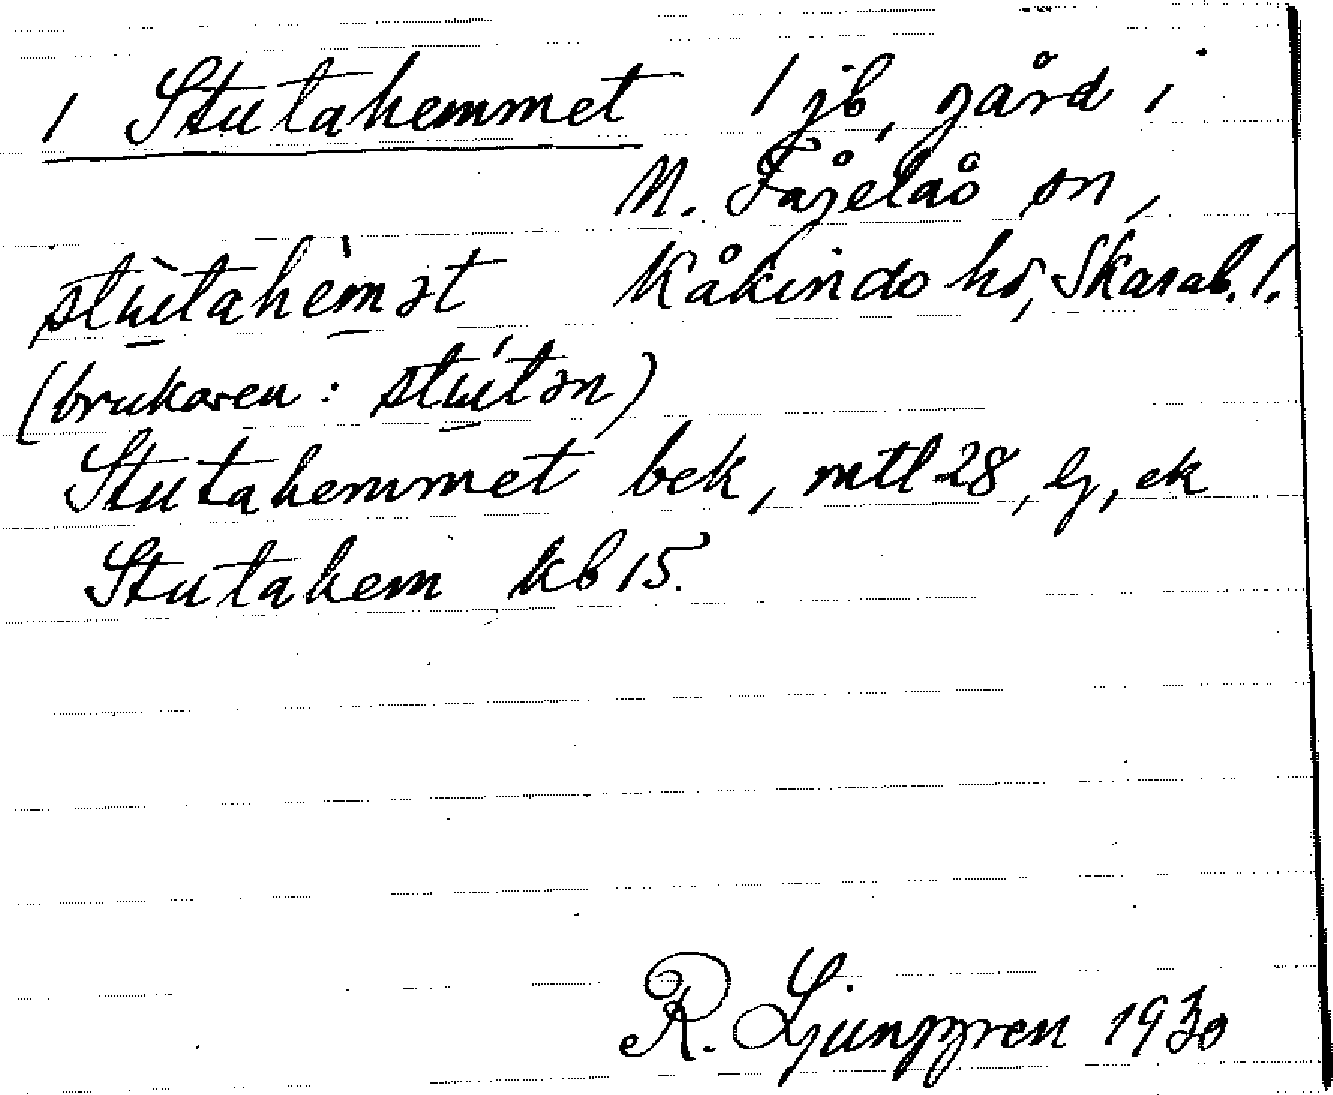 1 Stutahemmet 1 jb, gård i
N. Fågelås sn,
stùtahèmət Kåkinds hd, Skarab. l.
(brukaren: stútən)
Stutahemmet bek, mtl 28, lj, ek
Stutahem kb 15.
R. Ljunggren 1930